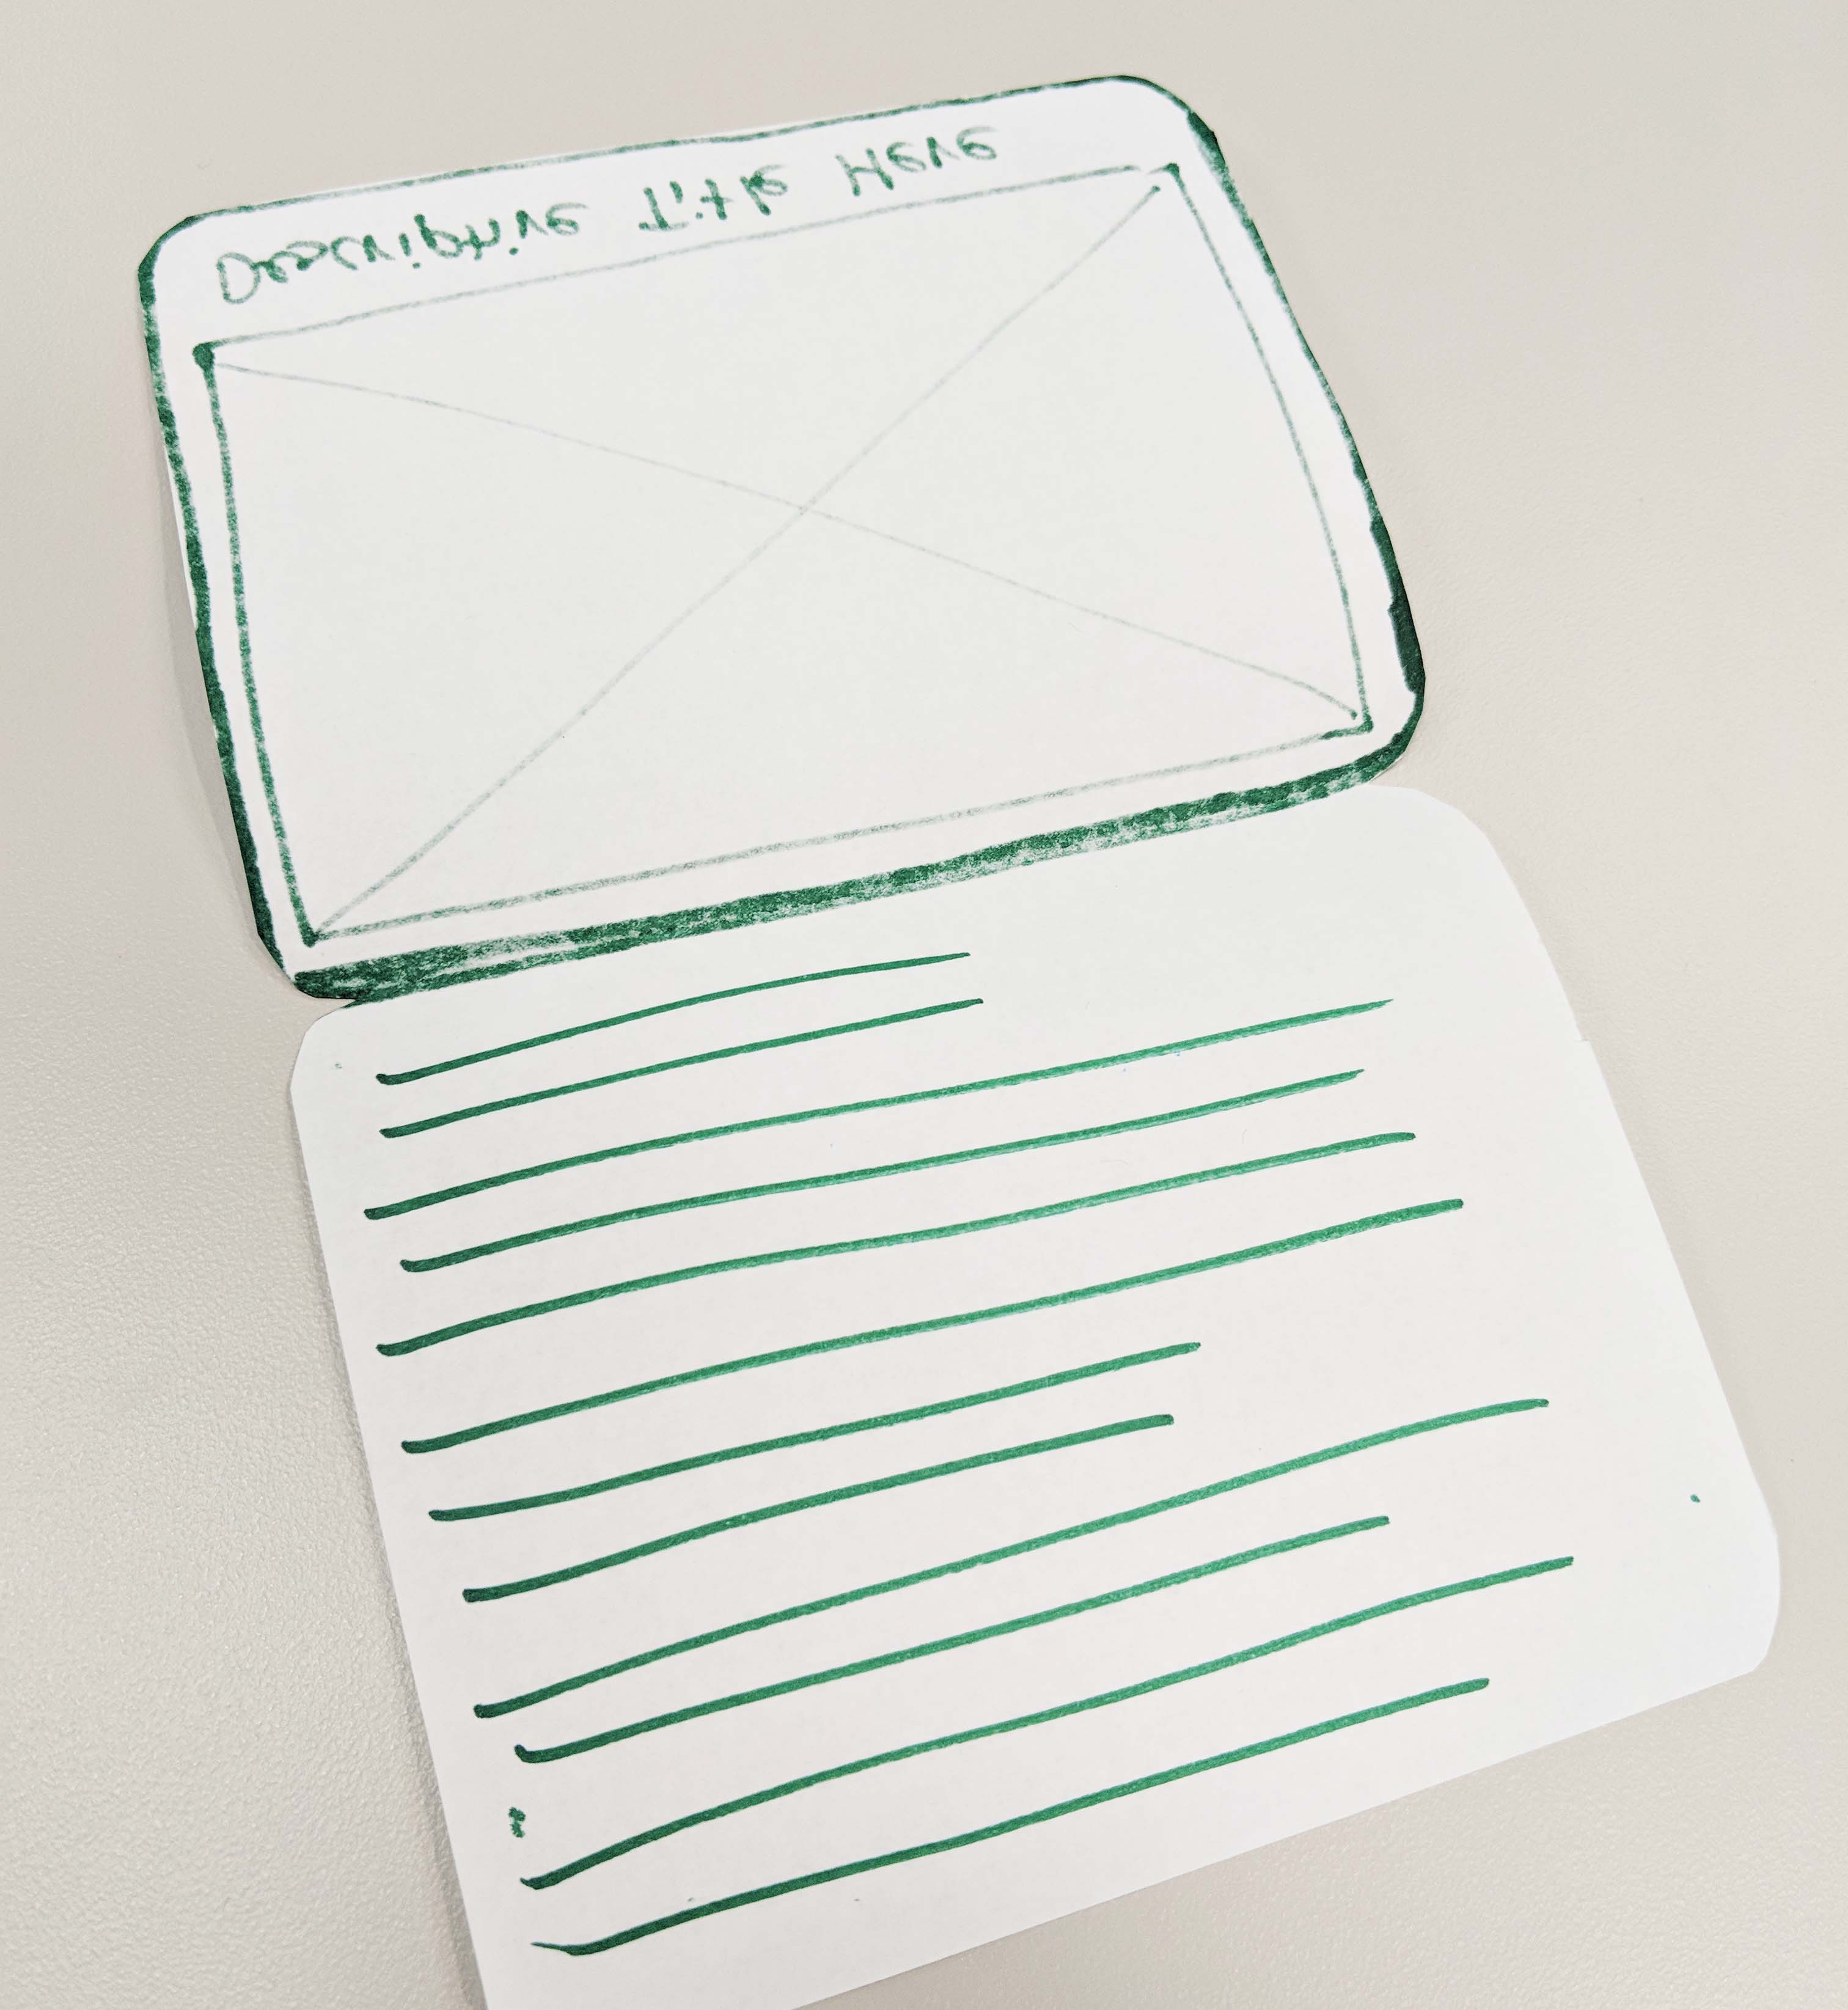 Descriptive Title Here